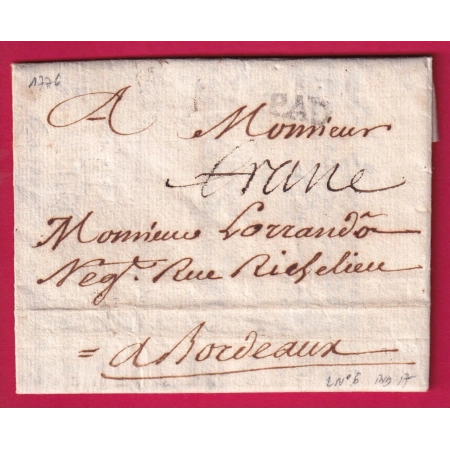 1776
PAU
A Monsieur
franc
Monsieur Lorrandō
Neg.t Rue Richelieu
= a Bordeaux
LN°6 IND 17